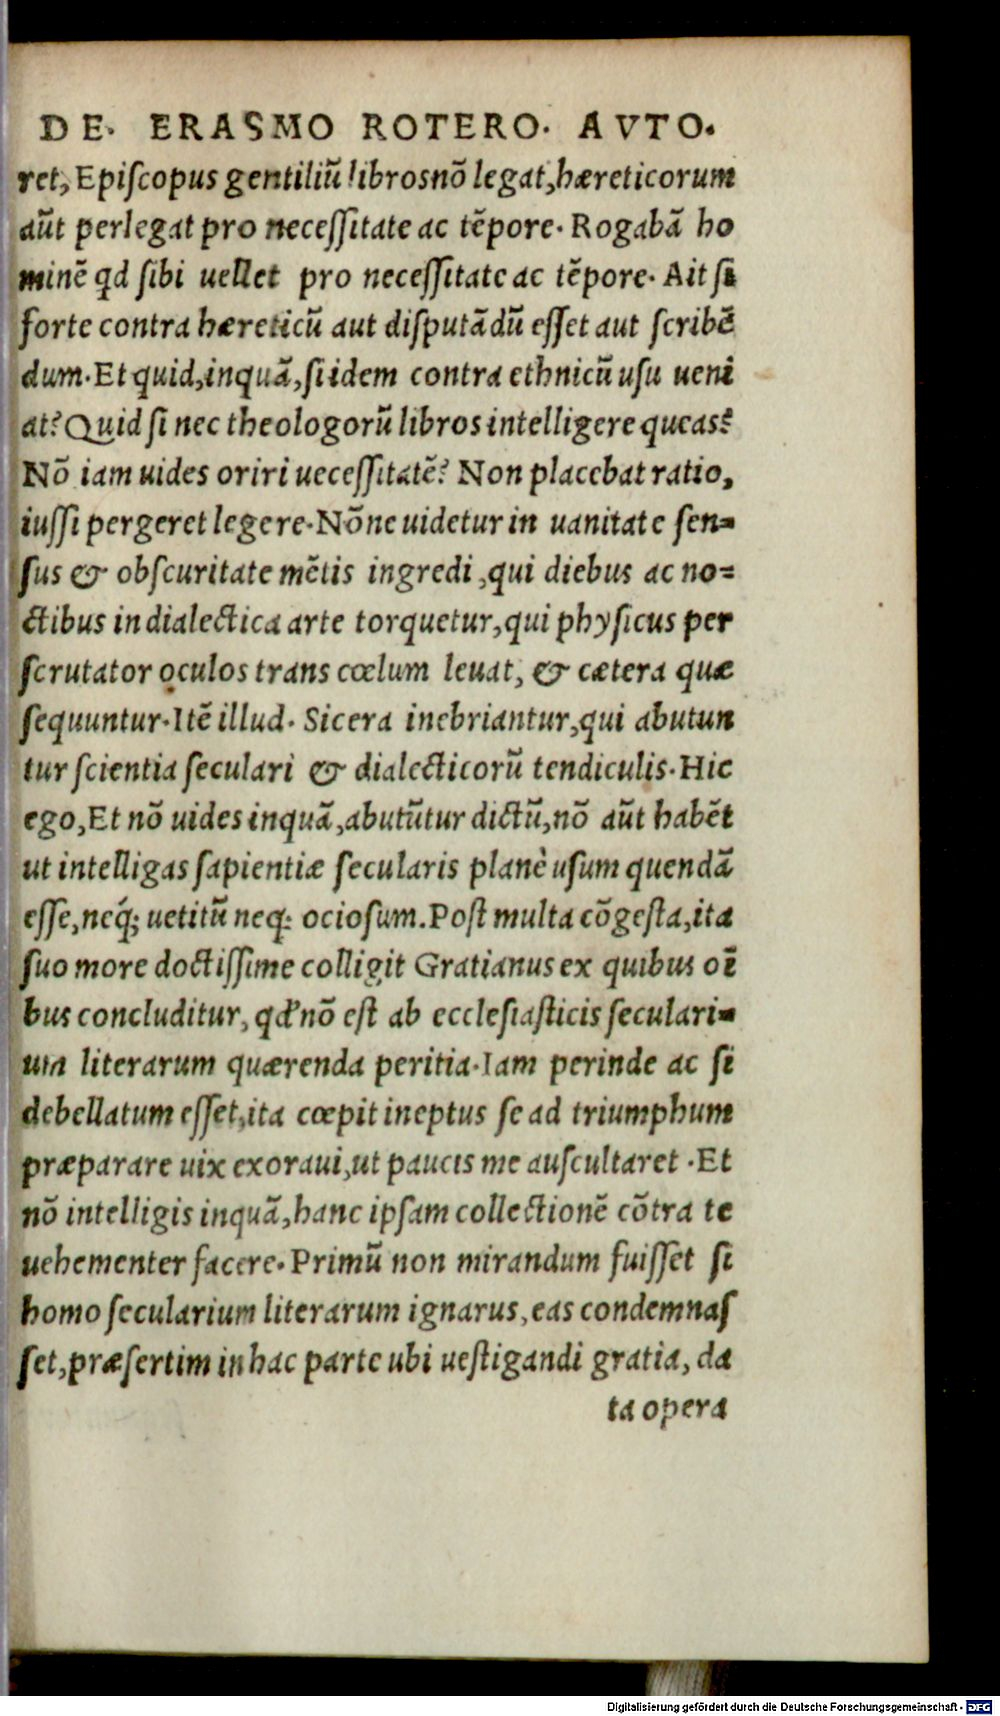 DE. ERASMO ROTERO. AVTO.
ret, Epiſcopus gentiliū librosnō legat,hæreticorum
aūt perlegat pro neceſſitate ac tēpore. Rogabā ho
minē qd ſibi uellet pro neceſſitate ac tēpore. Ait ſi
forte contra hæreticū aut diſputādū eſſet aut ſcribē
dum. Et quid,inquā,ſi idem contra ethnicū uſu ueni
at? Quid ſi nec theologorū libros intelligere queas?
Nō iam uides oriri ueceſſitatē? Non placebat ratio,
iuſſi pergeret legere. Nōne uidetur in uanitate ſen=
ſus & obſcuritate mētis ingredi,qui diebus ac no=
ctibus in dialectica arte torquetur,qui phyſicus per
ſcrutator oculos trans cœlum leuat, & cætera quæ
ſequuntur. Itē illud. Sicera inebriantur,qui abutun
tur ſcientia ſeculari & dialecticorū tendiculis. Hic
ego,Et nō uides inquā,abutūtur dictū,nō aūt habēt
ut intelligas ſapientiæ ſecularis planè uſum quendā
eſſe,neq́; uetitū neq; ocioſum. Poſt multa cōgeſta,ita
ſuo more doctiſſime colligit Gratianus ex quibus oī
bus concluditur, qd' nō eſt ab eccleſiaſticis ſeculari=
um literarum quærenda peritia. Iam perinde ac ſi
debellatum eſſet,ita cœpit ineptus ſe ad triumphum
præparare uix exoraui,ut paucis me auſcultaret .Et
nō intelligis inquā,hanc ipſam collectionē cōtra te
uehementer facere. Primū non mirandum fuiſſet ſi
homo ſecularium literarum ignarus,eas condemnaſ
ſet,præſertim in hac parte ubi ueſtigandi gratia, da
ta opera
Digitalisierung gefördert durch die Deutsche Forschungsgemeinschaft - DFG